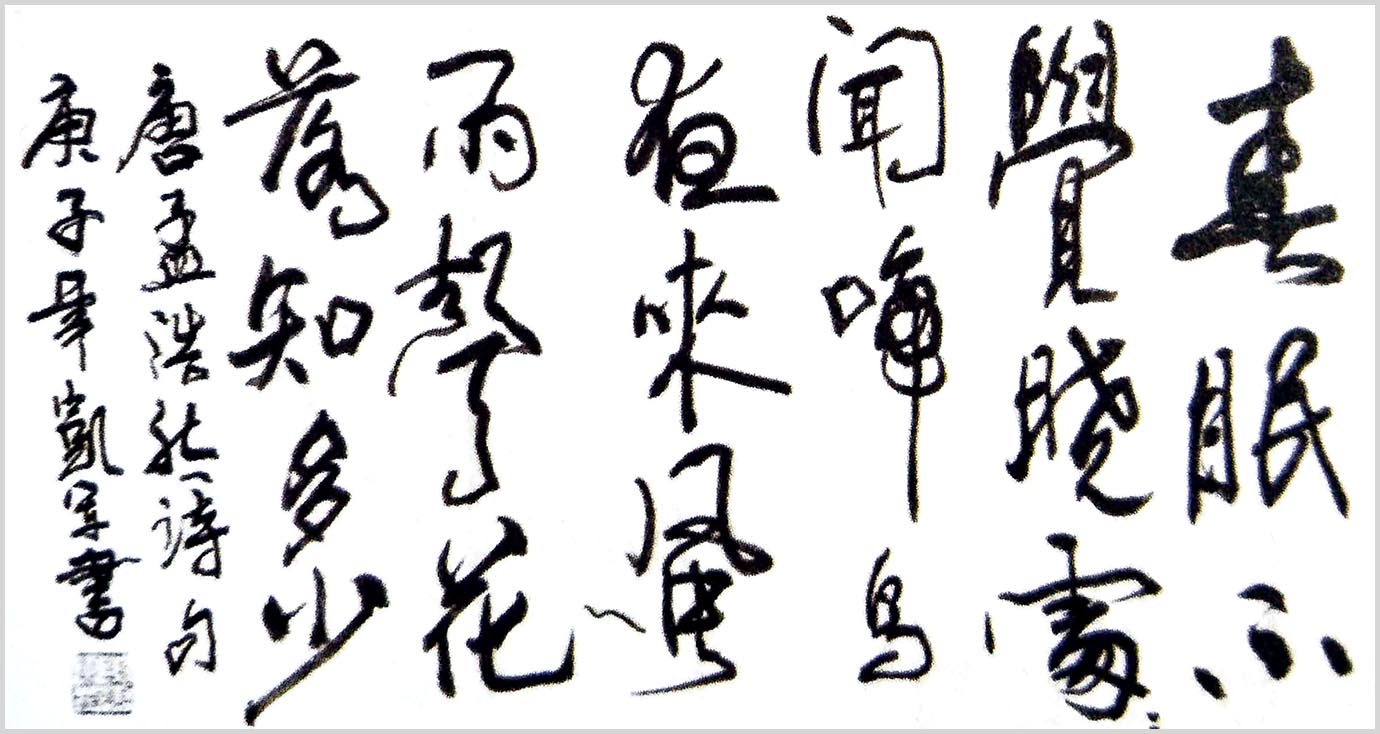 春眠不
覺曉處〻
聞啼鳥
夜來風
雨聲花
落知多少
唐孟浩然詩句
庚子年凱軍書